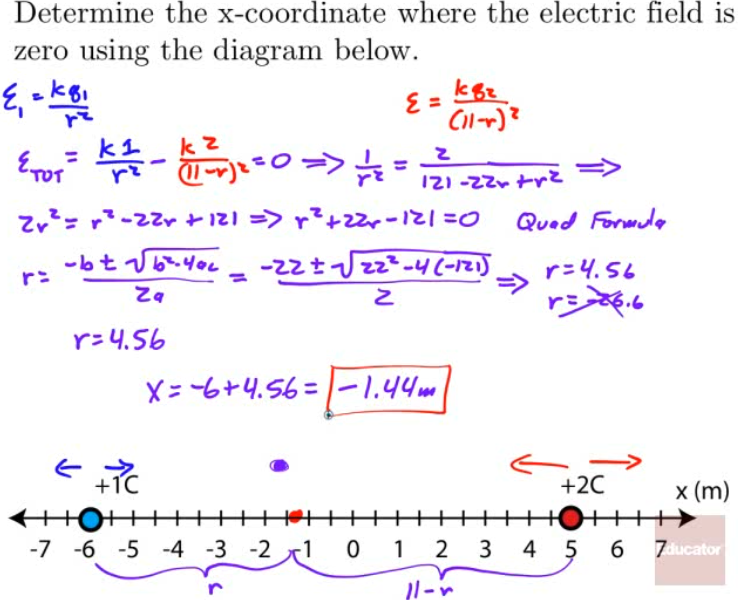 Determine the x-coordinate where the electric field is
zero using the diagram below.
ℰ₁ = kq₁/r²    ℰ = kq₂/(11-r)²
ℰTOT = k1/r² - k2/(11-r)² = 0 ⇒ 1/r² = 2/(121-22r+r²) ⇒
2r² = r²-22r+121 ⇒ r²+22r-121=0 Quad Formula
r = (-b ± √(b²-4ac))/2a = (-22 ± √(22²-4(-121)))/2 ⇒ r=4.56
r=-26.6
r=4.56
x = -6+4.56 = -1.44m
+1C +2C x (m)
-7 -6 -5 -4 -3 -2 -1 0 1 2 3 4 5 6 7 Educator
r 11-r